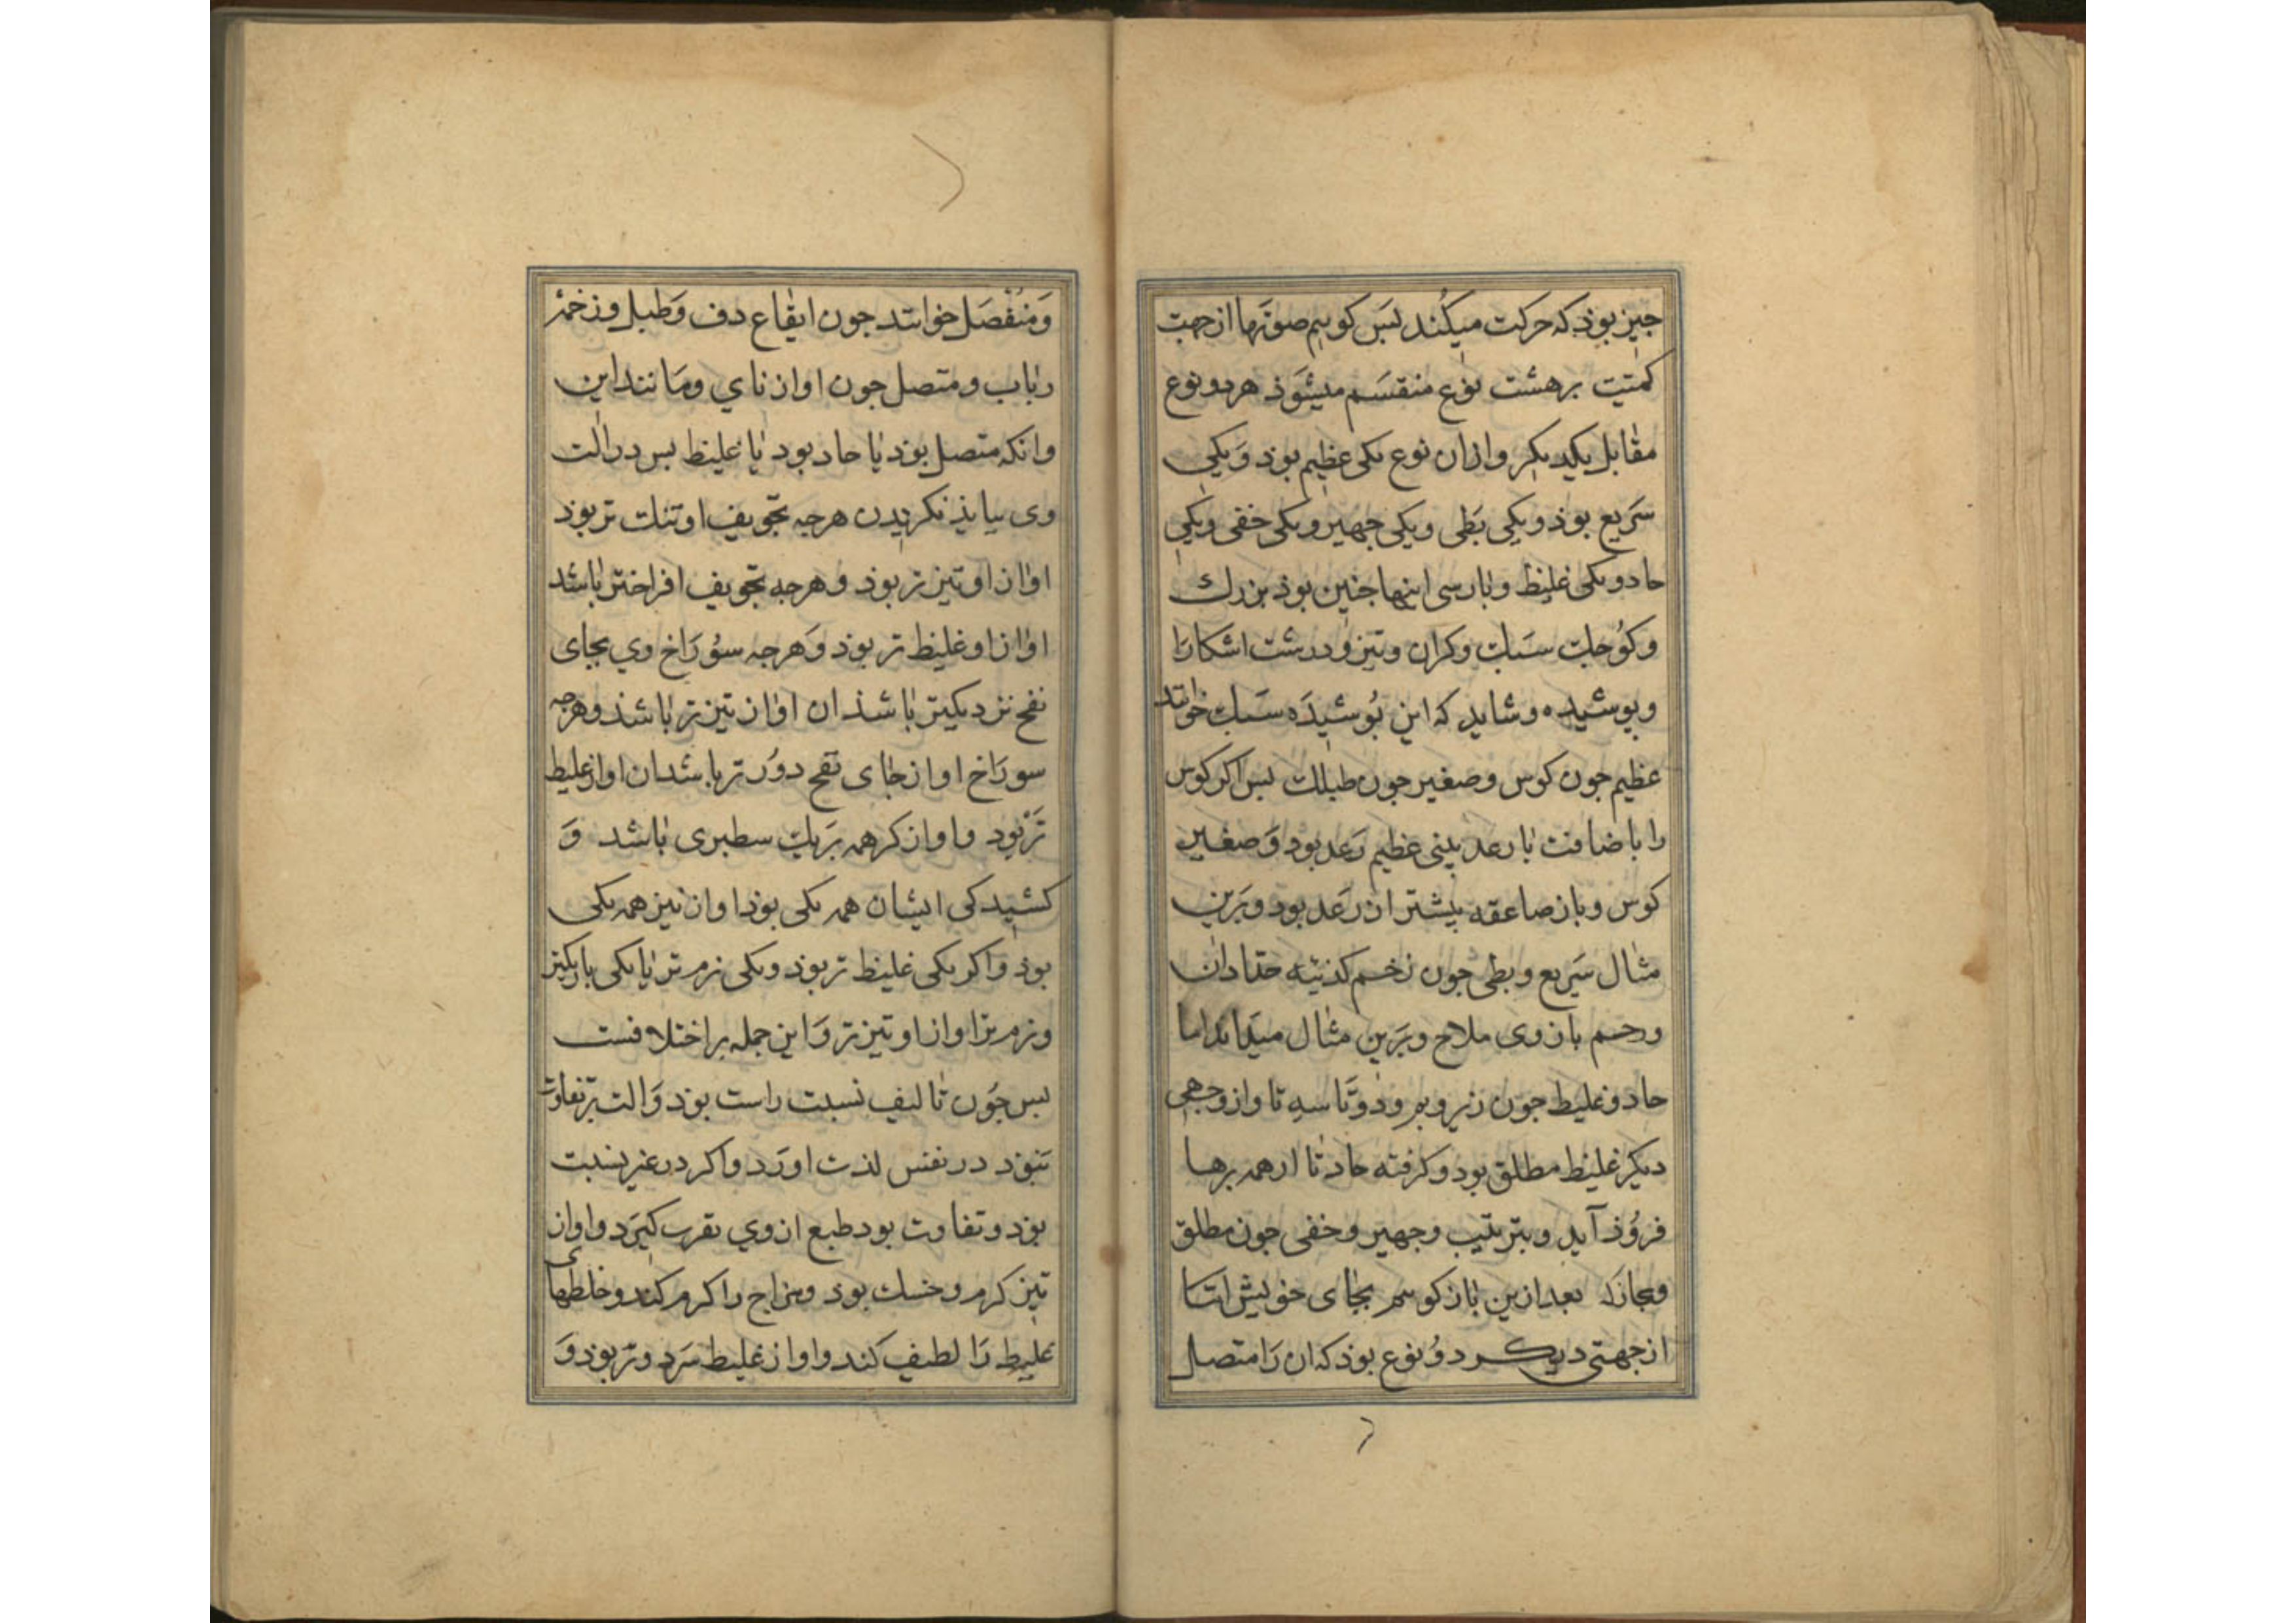 جیز بوذ که حرکت میکند بس کوییم صوتها از جهت
کمیت بر هشت نوع منقسم میشوذ هر دو نوع
مقابل یکدیکر و ازان نوع یکی عظیم بوذ و یکی
سریع بوذ و یکی بطی و یکی جهیر و یکی خفی و یکی
حاد و یکی غلیظ و بارسی اینها جنین بوذ بزرك
و کوجك سبك و کران و تیز و درشت اشکارا
و بوشیده و شاید که این بوشیده سبك خوانند
عظیم جون کوس و صغیر جون طبلك بس اکر کوس
را باضافت با رعد بینی عظیم رعد بود و صغیر
کوس و باز صاعقه بیشتر از رعد بود و برین
مثال سریع و بطی جون زخم کذینه حدادان
و زخم بازوی ملاح و برین مثال میدانذ اما
حاد و غلیظ جون زیر و بم و دوتا سه تا و از وجهی
دیکر غلیظ مطلق بود و کرفته حاد تا از همه برها
فروذ آید و بترتیب و جهیر و خفی جون مطلق
بعد ازین باز کوییم بجای خویش اتا
از جهتی دیکر دو نوع بوذ که ان را متصل
و منفصل خوانند جون ایقاع دف و طبل و زخمۀ
رباب و متصل جون اواز نای و مانند این
و انکه متصل بوذ یا حاد بود یا غلیظ بس در الت
وی بیایذ نکریدن هرجه تجویف او تنك تر بوذ
اواز او تیز تر بوذ و هرجه تجویف افراختر باشد
اواز او غلیظ تر بوذ و هرجه سوراخ وی بجای
نفخ نزدیکتر باشذ ان اواز تیز تر باشذ و هرجه
سوراخ او از جای نفخ دور تر باشد ان اواز غلیظ
تر بود و اواز کر همه بر یك سطبری باشد و
کشیدکی ایشان همه یکی بوذ اواز نیز همه یکی
بوذ و اکر یکی غلیظ تر بوذ و یکی نرم تر یا یکی باریکتر
و نرم تر اواز او تیز تر و این جمله بر اختلافست
بس جون تالیف نسبت راست بوذ و الت بر تفاوت
نبوذ در نفس لذت اورد و اکر در غیر نسبت
بوذ و تفاوت بود طبع از وی نفرت کیرد و اواز
تیز کرم و خشك بوذ و مزاج را کرم کند و خلطهای
غلیظ را لطیف کند و اواز غلیظ سرد و تر بوذ و